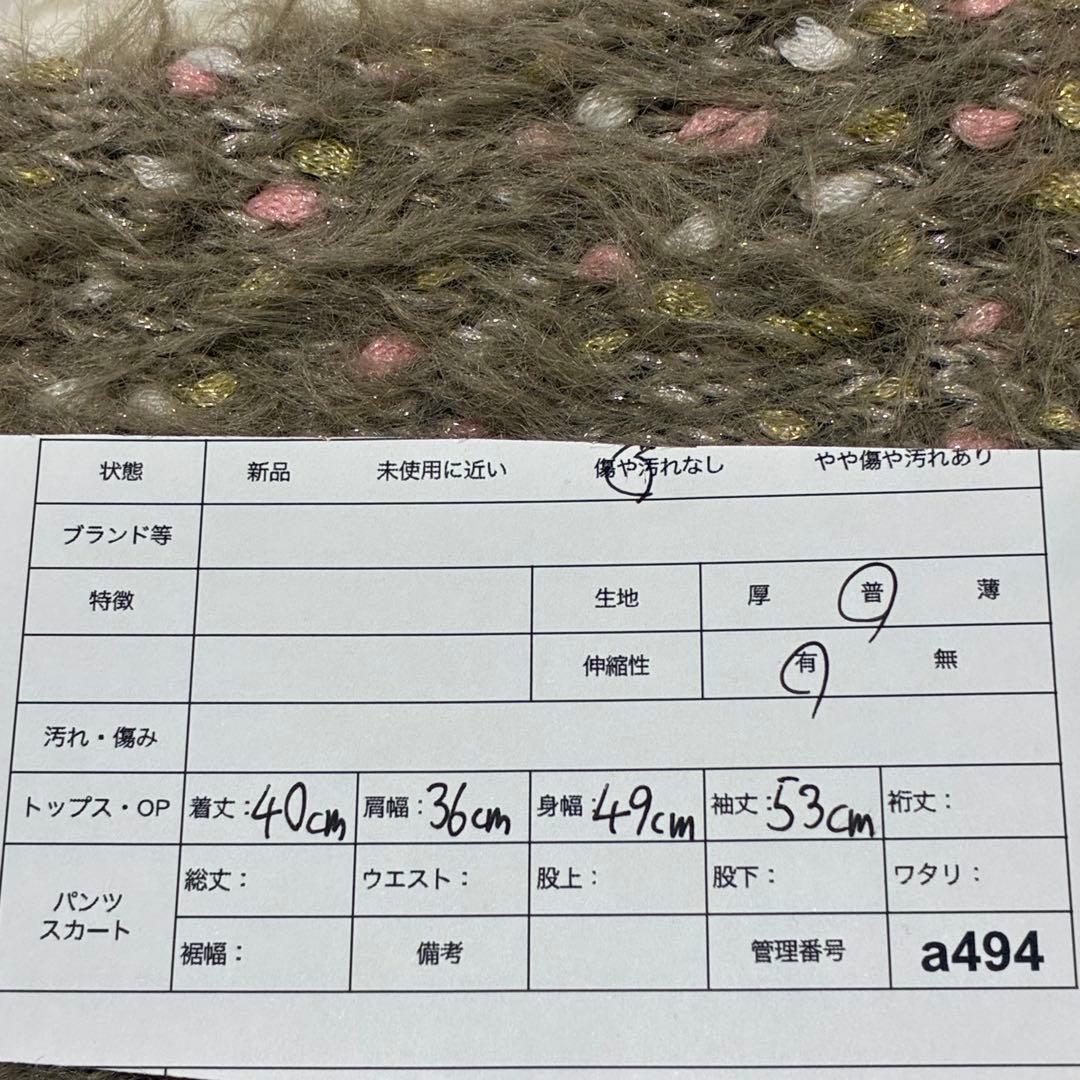 状態 新品 未使用に近い 傷や汚れなし やや傷や汚れあり
ブランド等
特徴 生地 厚 普 薄
伸縮性 有 無
汚れ・傷み
トップス・OP 着丈:40cm 肩幅:36cm 身幅:49cm 袖丈:53cm 裄丈:
パンツ
スカート
総丈: ウエスト: 股上: 股下: ワタリ:
裾幅: 備考 管理番号 a494